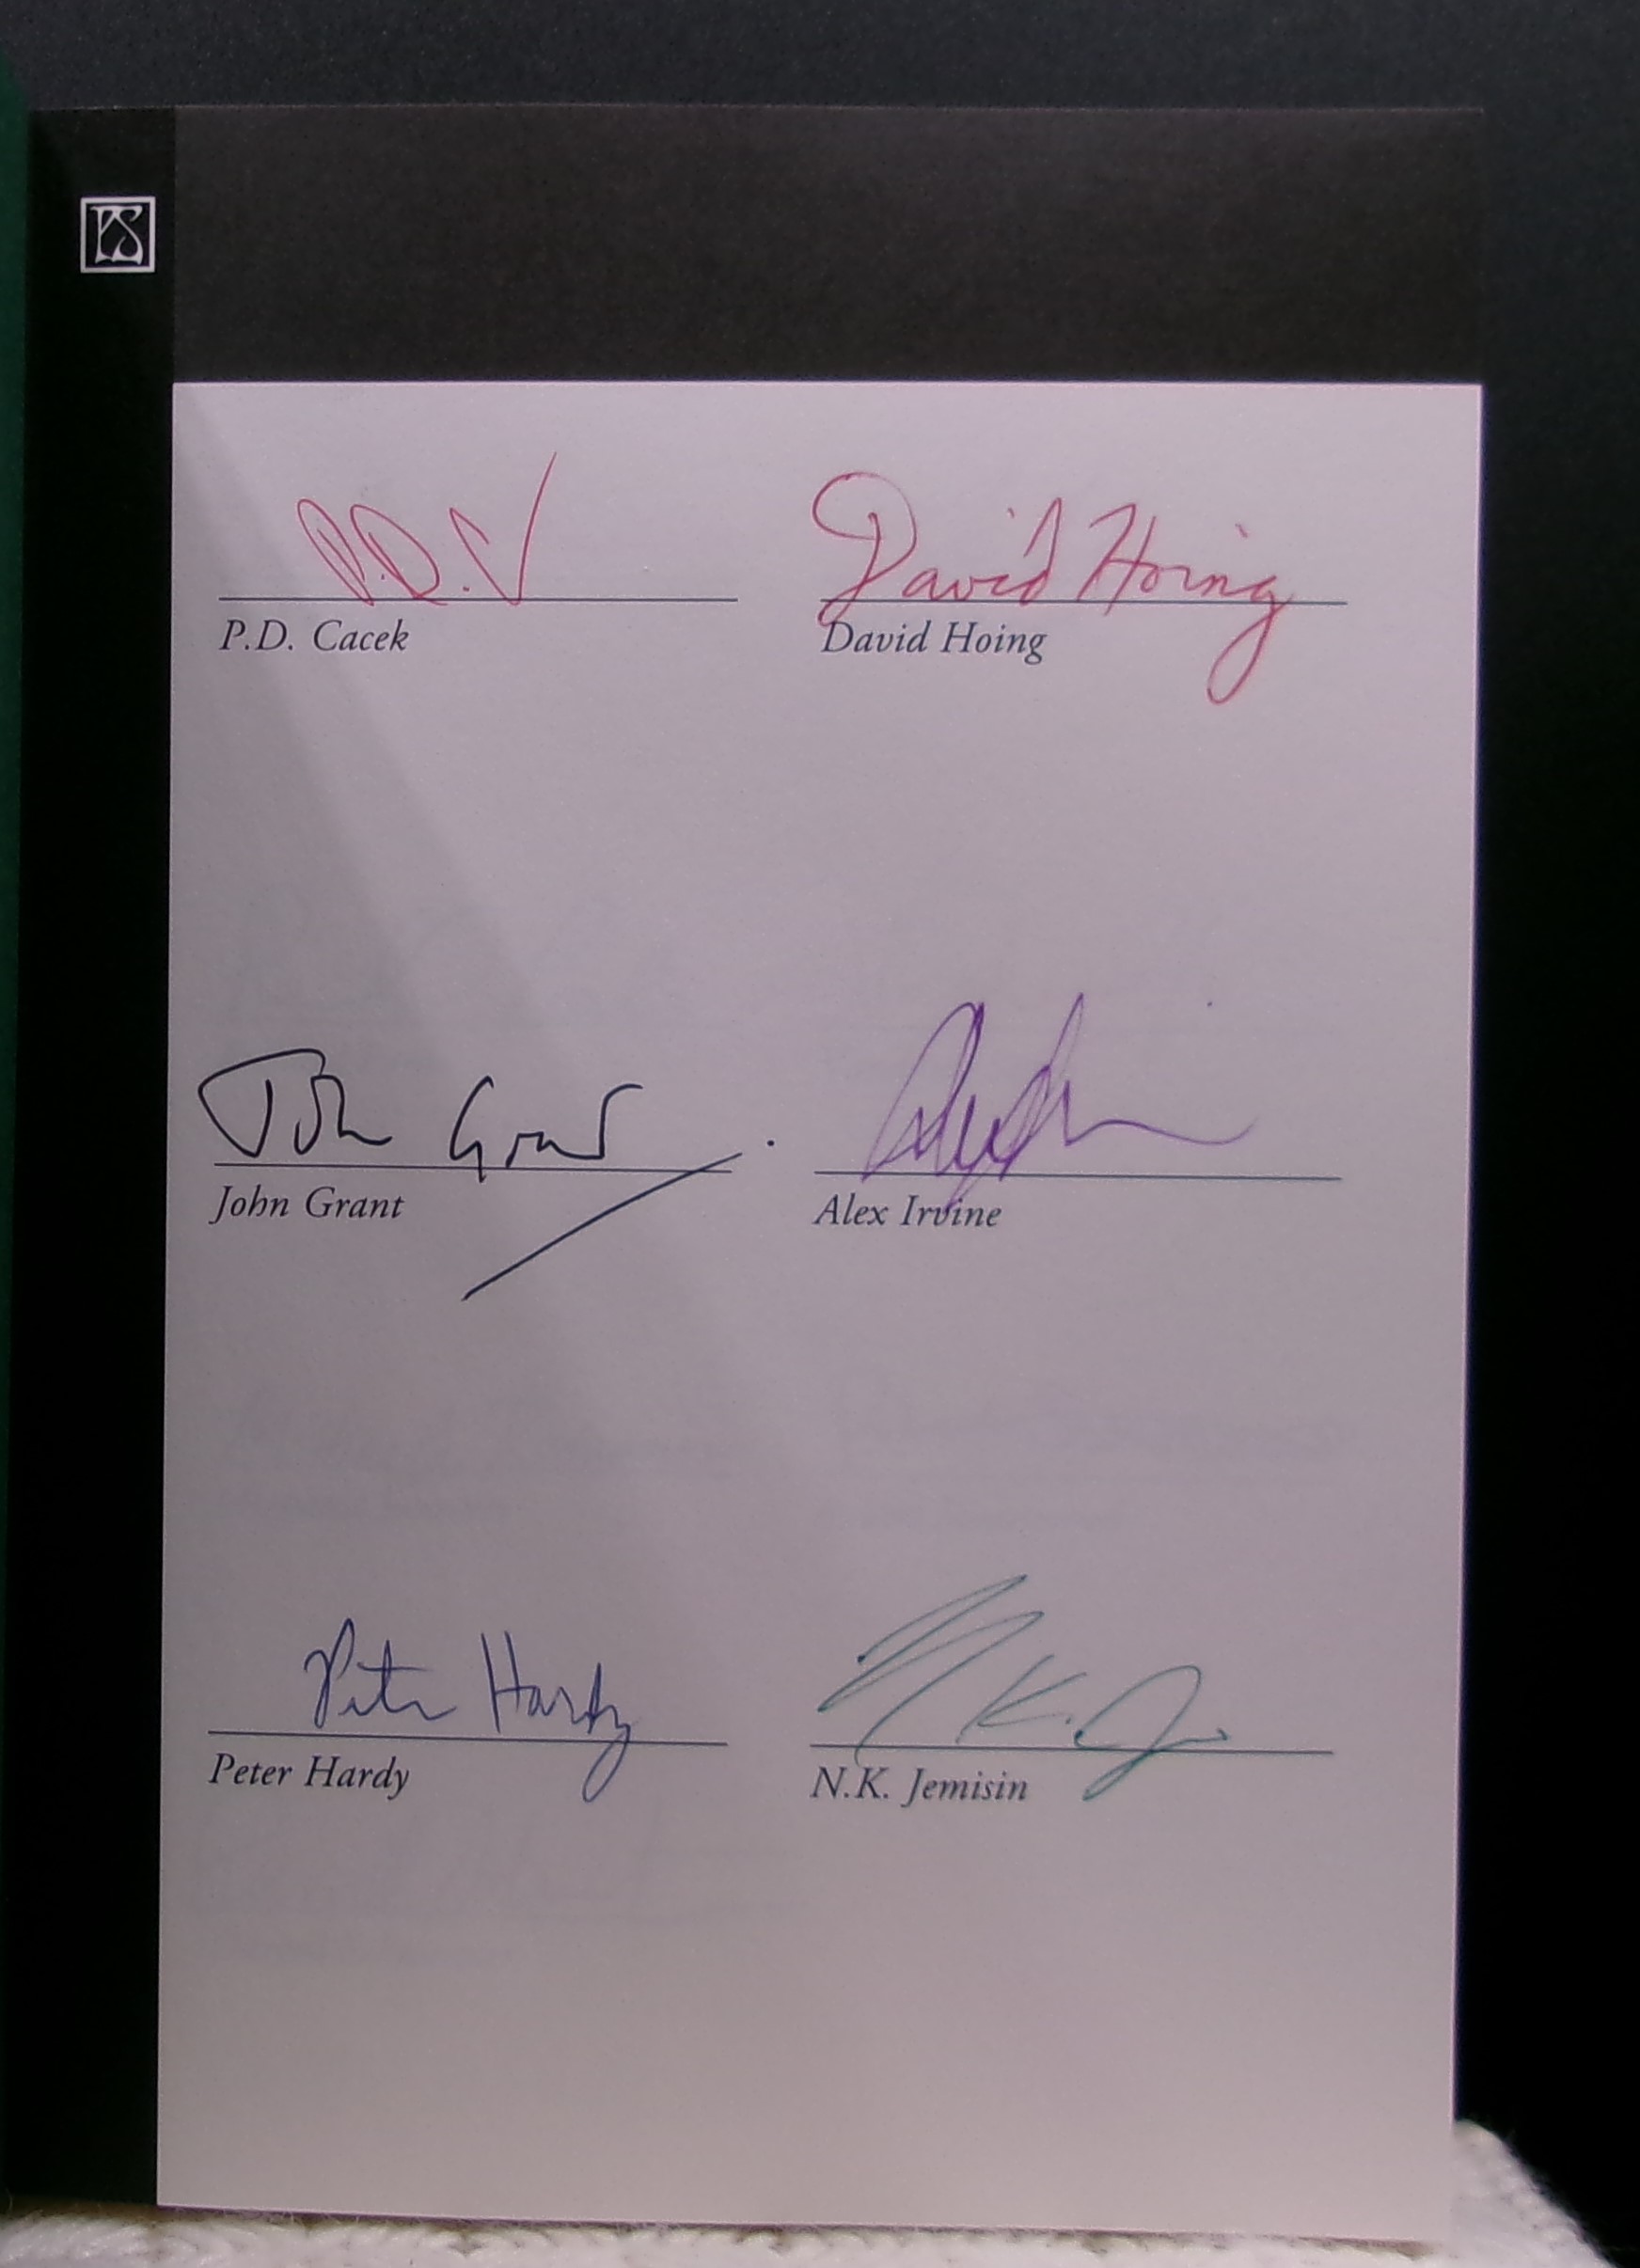 PS
P.D. C
David Hoing
P.D. Cacek
David Hoing
John Grant
John Grant
Alex Irvine
Peter Hardy
N.K. J
Peter Hardy
N.K. Jemisin